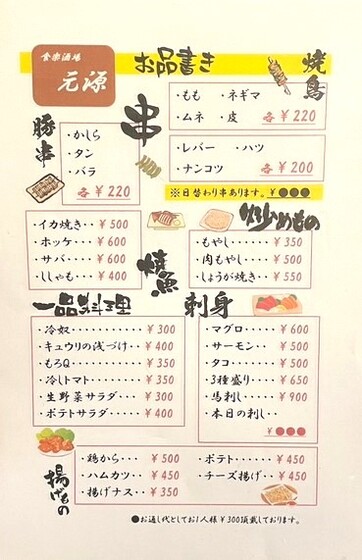 食楽酒場
元源
お品書き
焼鳥
串
・もも ・ネギマ
・ムネ ・皮
各 ¥220
・レバー ・ハツ
・ナンコツ 各 ¥200
※日替わり串あります。¥●●●
豚串
・かしら
・タン
・バラ
各 ¥220
焼魚
・イカ焼き・・ ¥500
・ホッケ・・・ ¥600
・サバ・・・・ ¥600
・ししゃも・・ ¥400
炒めもの
・もやし・・・・・・ ¥350
・肉もやし・・・・ ¥500
・しょうが焼き・・ ¥550
一品料理
・冷奴・・・・・・・・ ¥300
・キュウリの浅づけ・・ ¥400
・もろQ・・・・・・・ ¥350
・冷しトマト・・・・・ ¥350
・生野菜サラダ・・・ ¥300
・ポテトサラダ・・・ ¥400
刺身
・マグロ・・・・・・ ¥600
・サーモン・・・・ ¥500
・タコ・・・・・・・ ¥500
・3種盛り・・・・ ¥650
・馬刺し・・・・・ ¥900
・本日の刺し・・
¥●●●
揚げもの
・鶏から・・・ ¥500
・ハムカツ・・ ¥450
・揚げナス・・ ¥350
・ポテト・・・・・ ¥450
・チーズ揚げ・・ ¥450
●お通し代としてお1人様¥300頂戴しております。